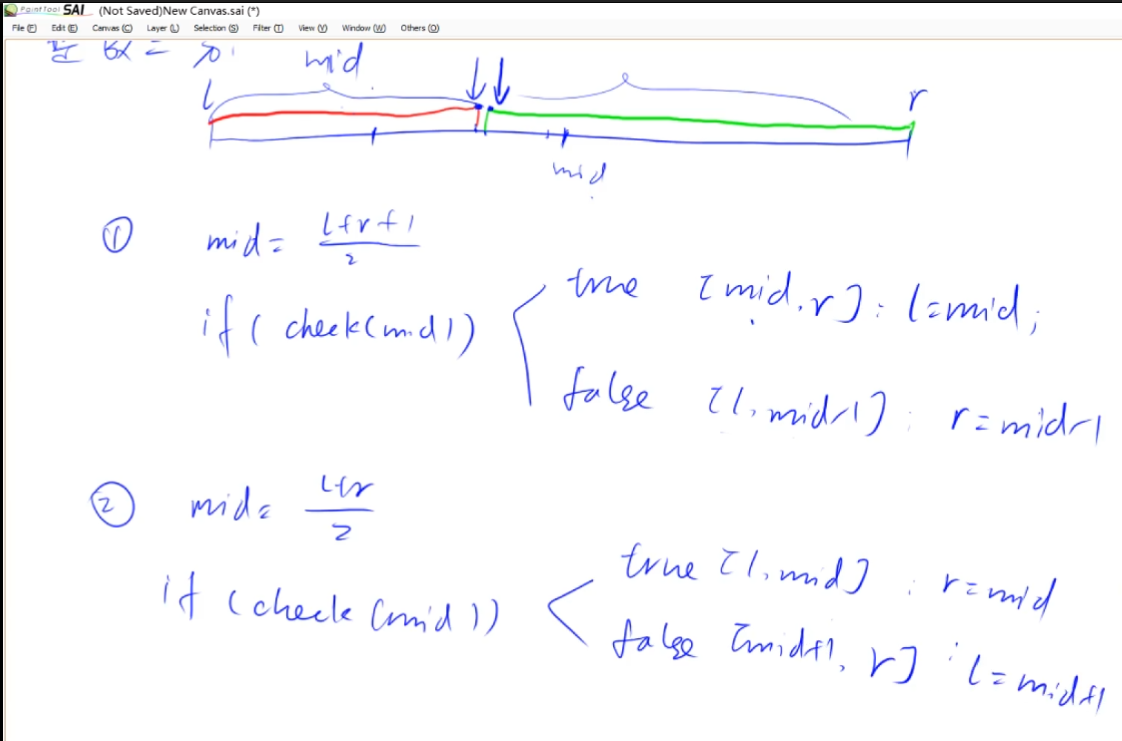 PaintTool SAI (Not Saved)New Canvas.sai (*)
File (F) Edit (E) Canvas (C) Layer (L) Selection (S) Filter (T) View (V) Window (W) Others (O)
mid
l r
mid
① mid = (l+r+1)/2
if ( check(mid) )
true [mid, r] : l=mid;
false [l, mid-1] : r=mid-1
② mid = (l+r)/2
if (check (mid))
true [l, mid] : r=mid
false [mid+1, r] : l=mid+1